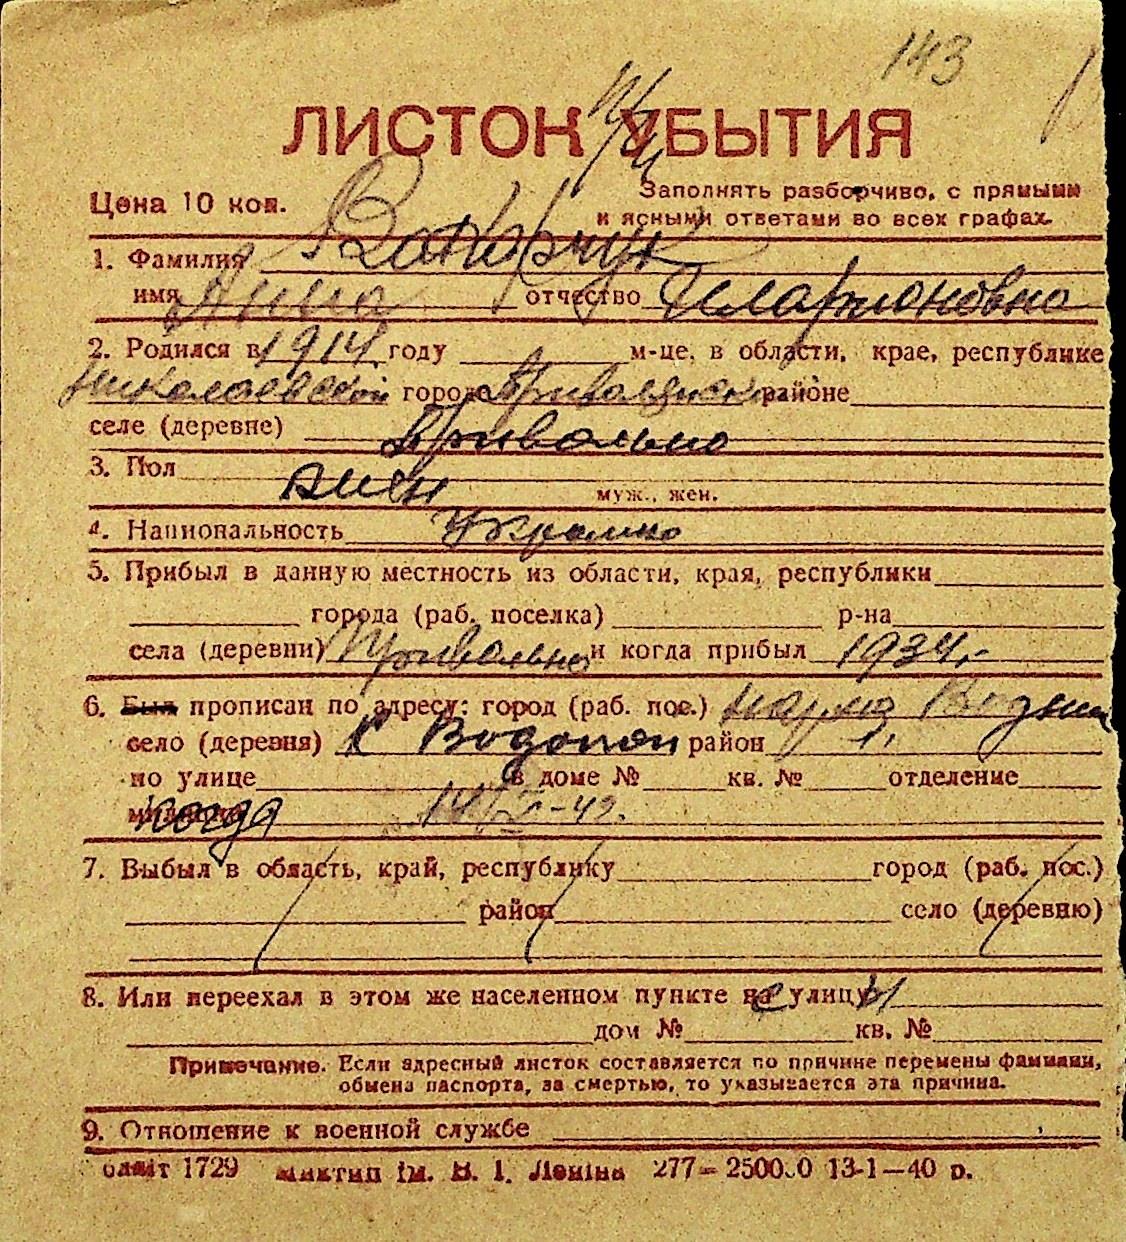 143
ЛИСТОК УБЫТИЯ
Цена 10 коп.
Заполнять разборчиво, с прямыми
и ясными ответами во всех графах.
1. Фамилия
имя Анна отчество Иларионовна
2. Родился в 1914 году м-це, в области, крае, республике
Николаевской города районе
селе (деревне) Привольно
3. Пол жен
муж., жен.
4. Национальность Украинка
5. Прибыл в данную местность из области, края, республики
города (раб. поселка) р-на
села (деревни) Привольно и когда прибыл 1934
6. Был прописан по адресу: город (раб. пос.)
село (деревня) Водопой район
по улице в доме № кв. № отделение
милиции когда
7. Выбыл в область, край, республику город (раб. пос.)
район село (деревню)
8. Или переехал в этом же населенном пункте на улицу
дом № кв. №
Примечание. Если адресный листок составляется по причине перемены фамилии,
обмена паспорта, за смертью, то указывается эта причина.
9. Отношение к военной службе
1729 ім. В. І. Леніна 277— 13-1—40 р.